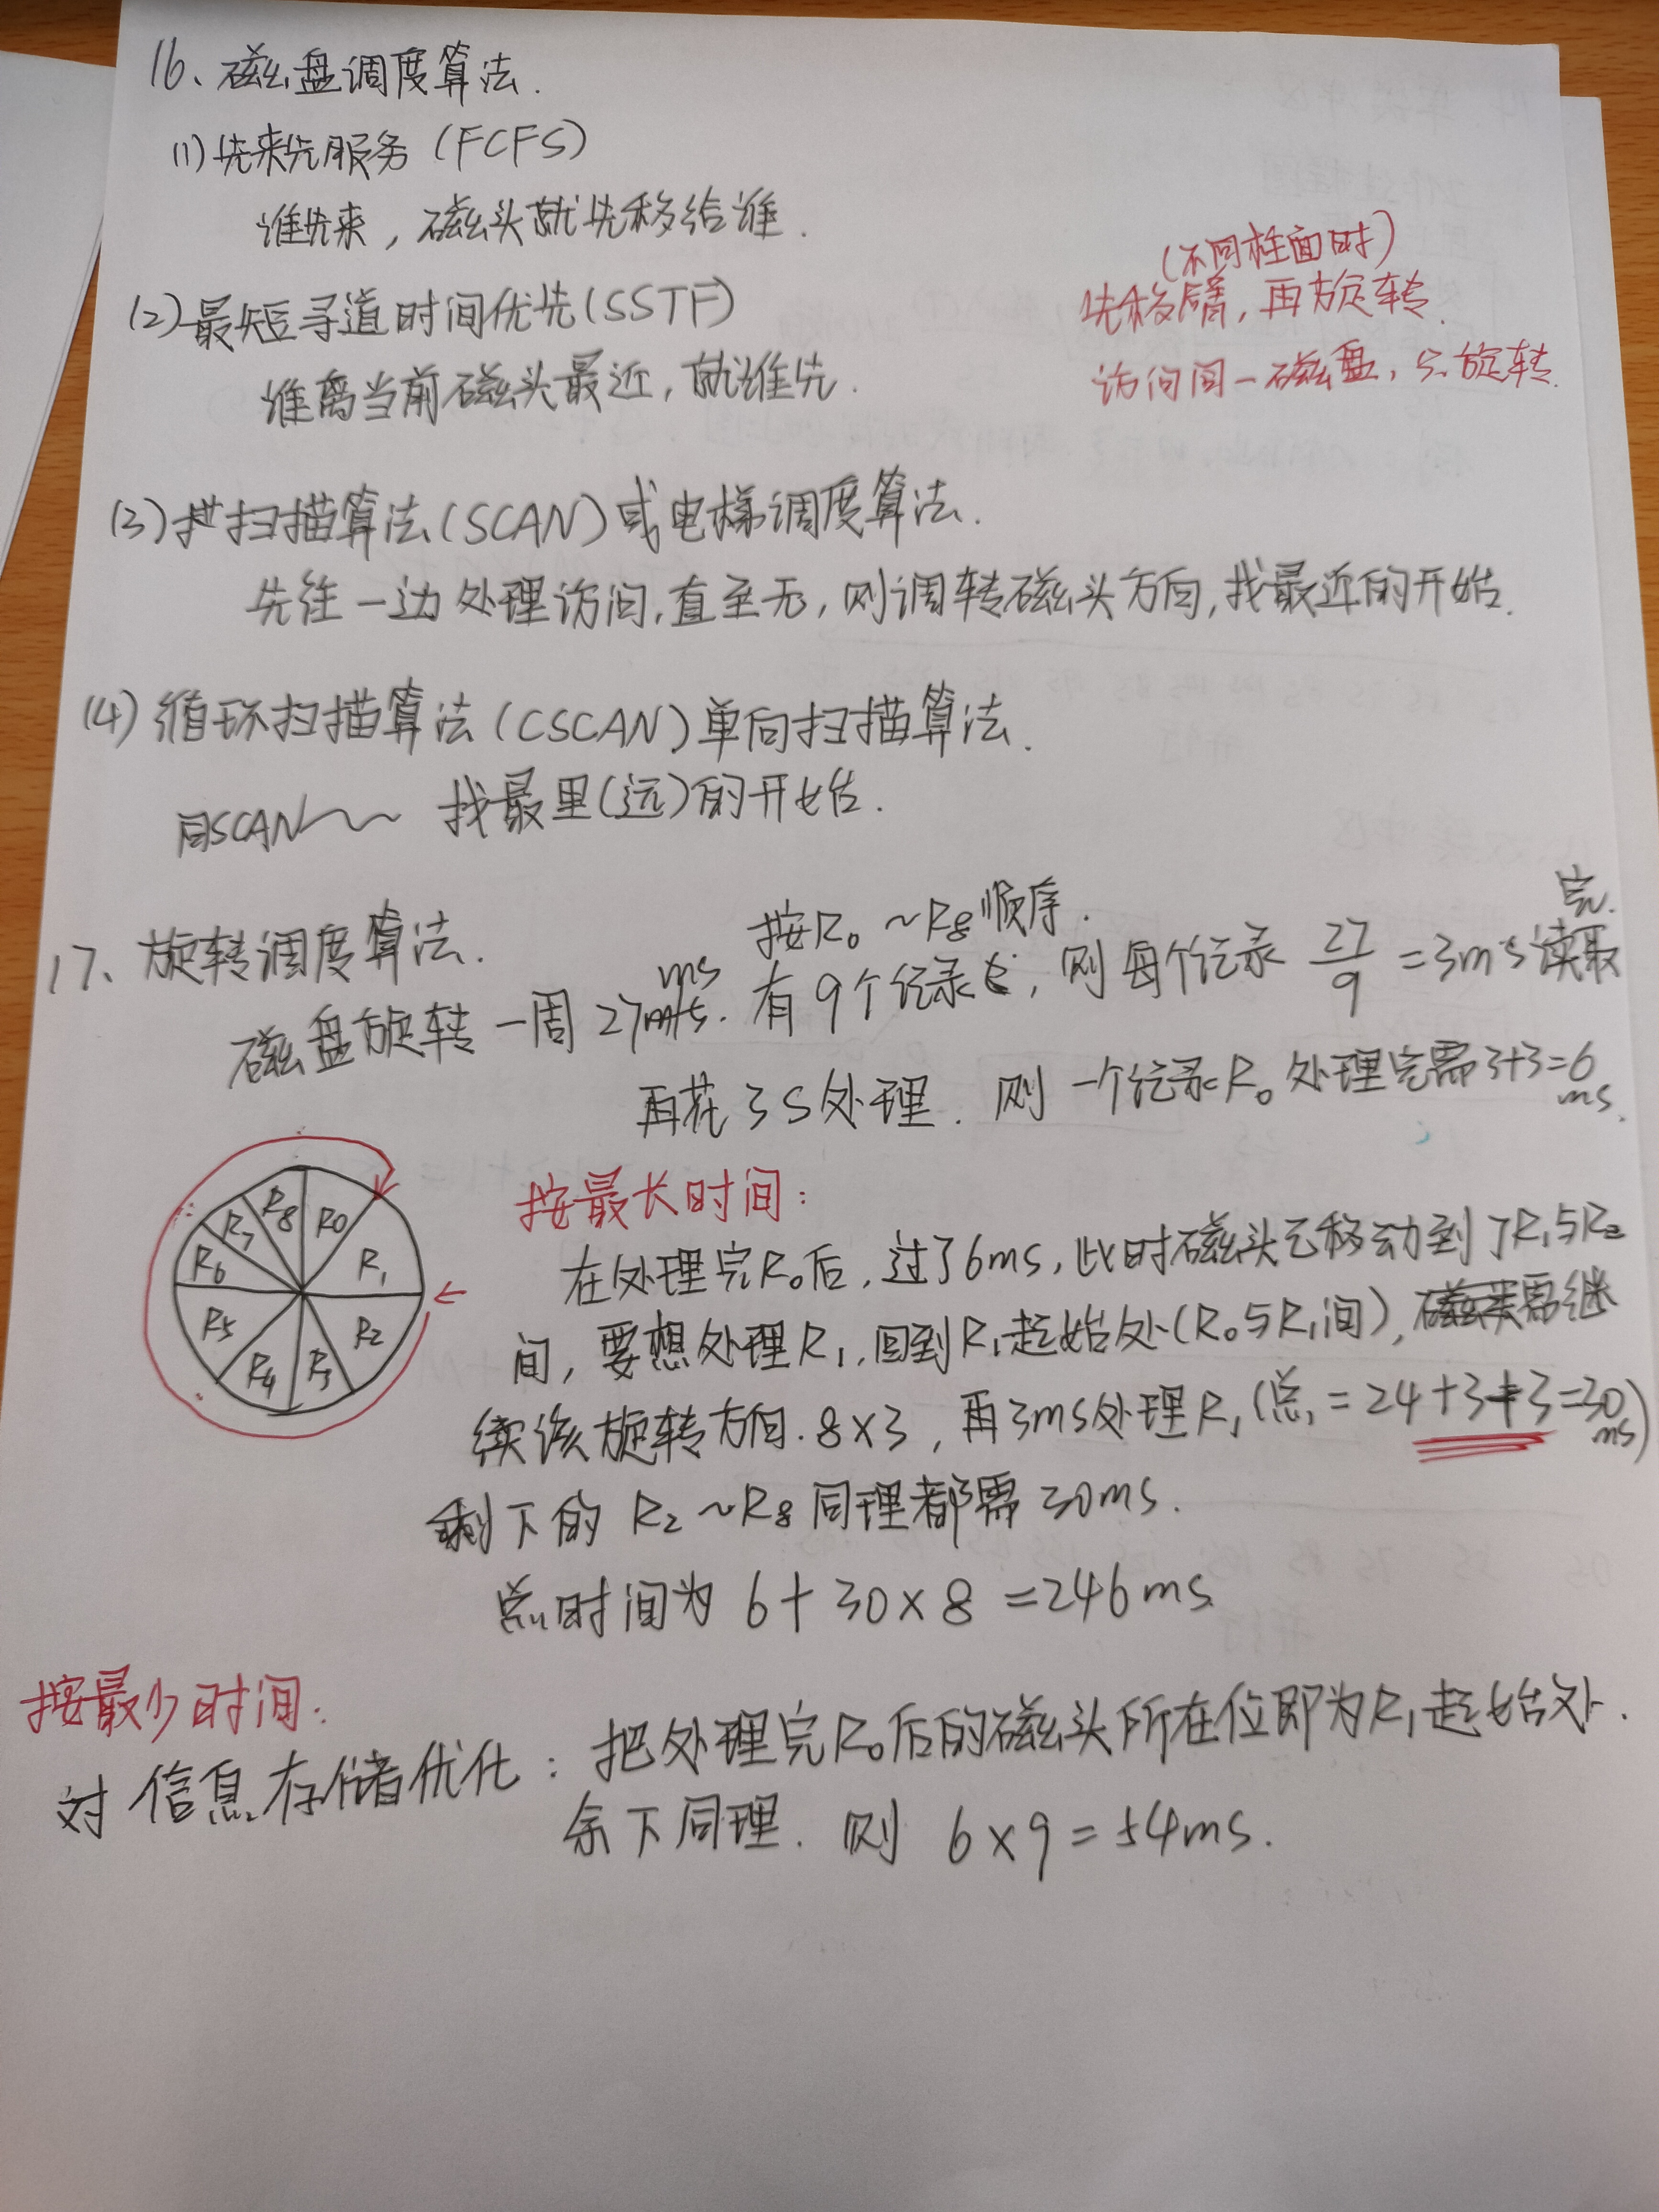 16、磁盘调度算法.
(1)先来先服务(FCFS)
谁先来,磁头就先移给谁.
(不同柱面时)
先移臂,再旋转.
访问同一磁盘,只旋转.
(2)最短寻道时间优先(SSTF)
谁离当前磁头最近,就谁先.
(3)扫描算法(SCAN)或电梯调度算法.
先往一边处理访问,直至无,则调转磁头方向,找最近的开始.
(4)循环扫描算法(CSCAN)单向扫描算法.
同SCAN~~ 找最里(远)的开始.
17、旋转调度算法.
按R0~R8顺序.
磁盘旋转一周27ms.有9个记录,则每个记录 27/9 =3ms读取完.
再花3S处理.则一个记录R0处理完需3+3=6ms.
R8 R0
R7
R6 R1
R5 R2
R4 R3
按最长时间:
在处理完R0后,过了6ms,此时磁头已移动到了R1与R2
间,要想处理R1,回到R1起始处(R0与R1间),需继
续该旋转方向.8×3,再3ms处理R1(总=24+3+3=30ms)
剩下的R2~R8同理都需30ms.
总时间为 6+30×8=246ms
按最少时间:
对信息存储优化:把处理完R0后的磁头所在位即为R1起始处.
余下同理.则 6×9=54ms.